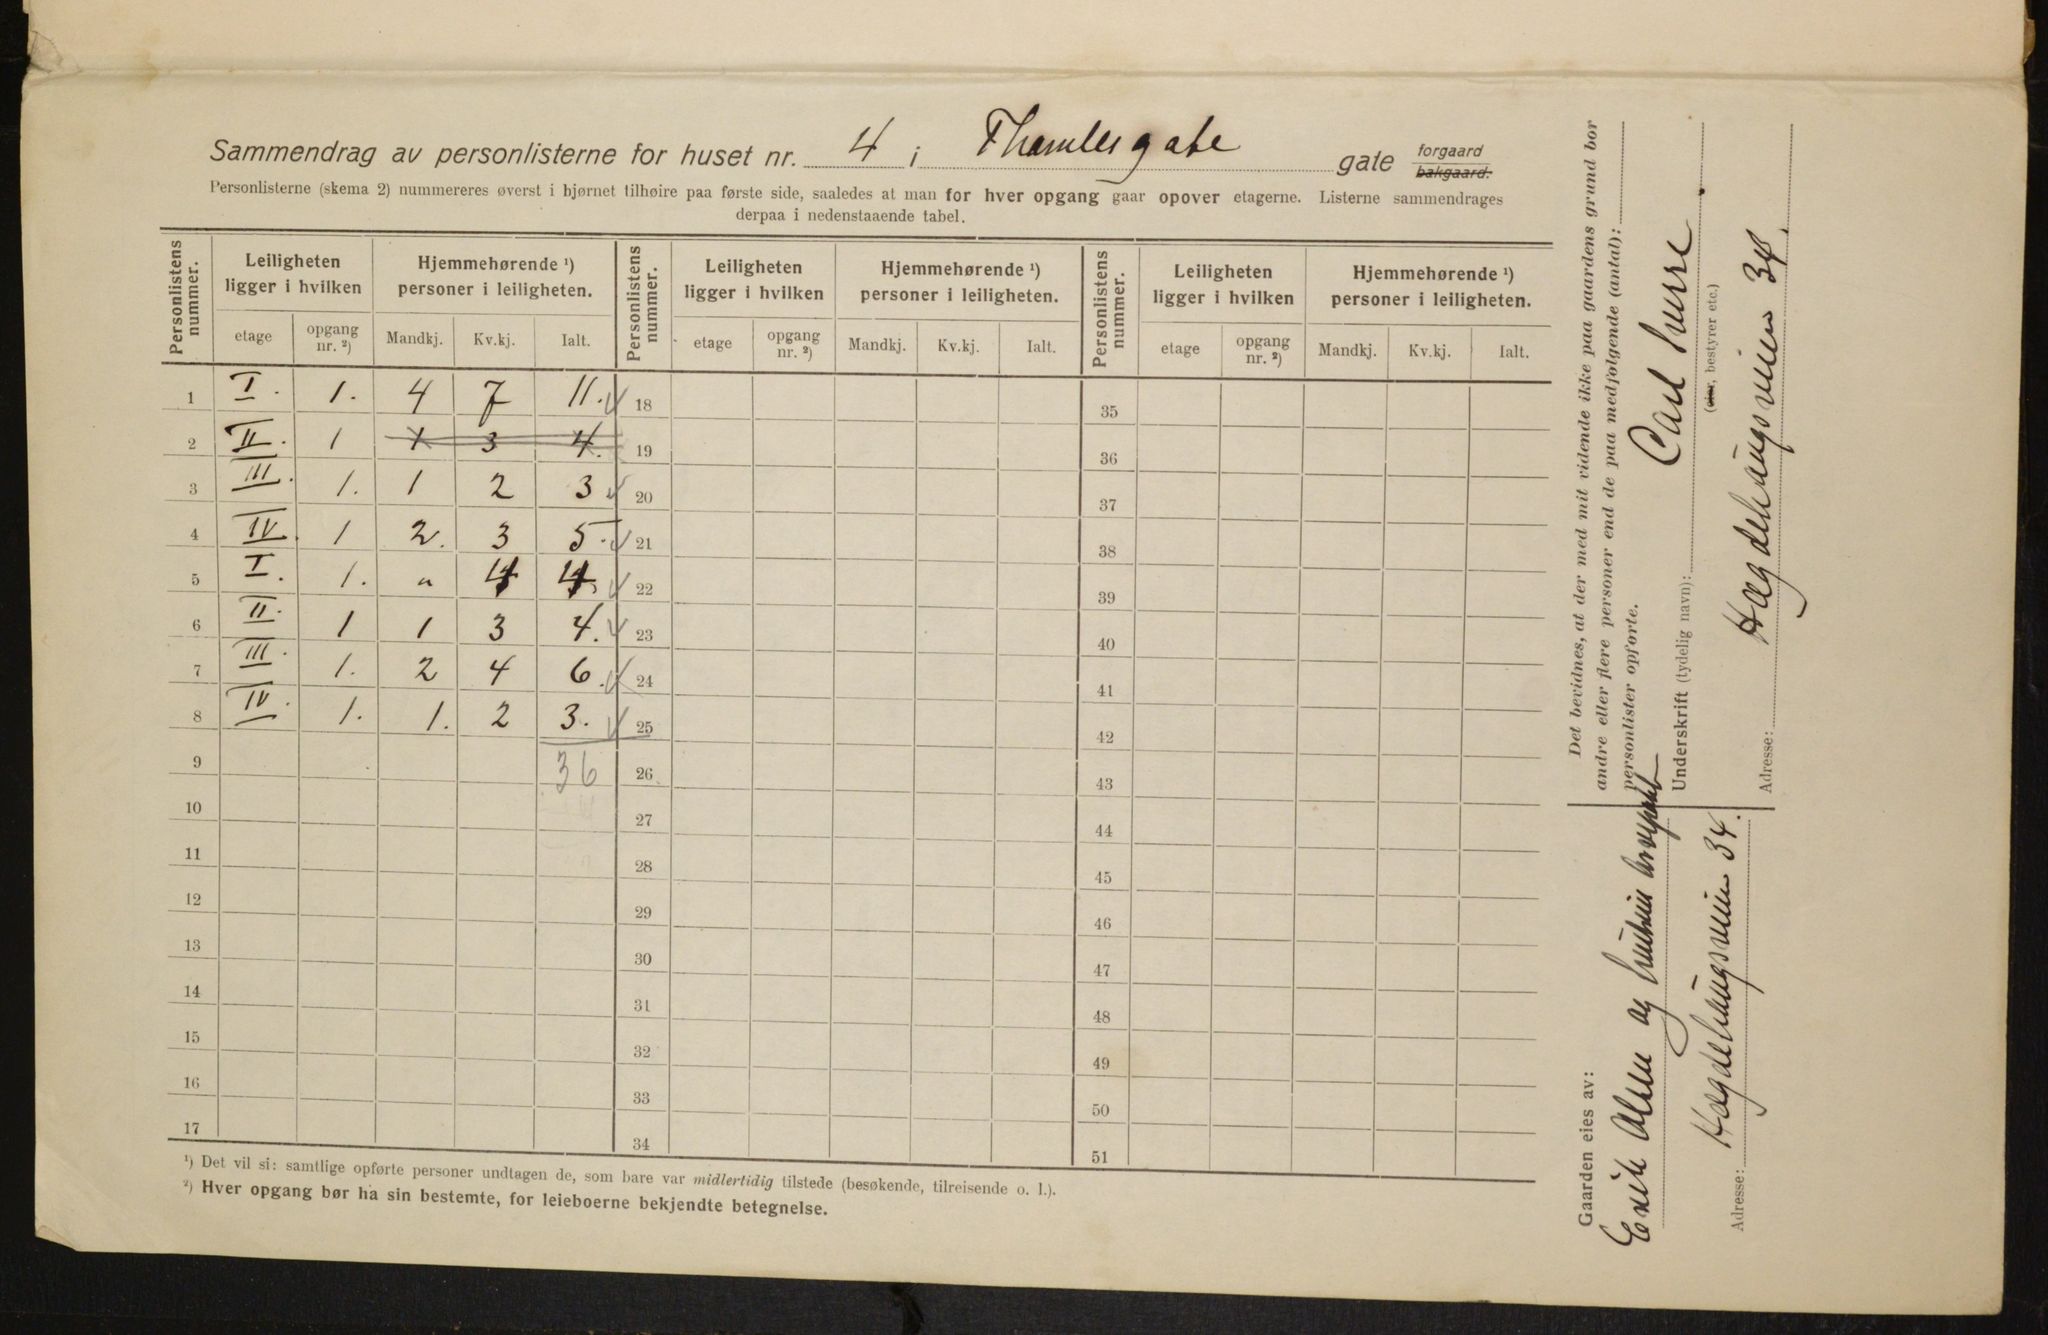 Sammendrag av personlisterne for huset nr. 4 i Thamlesgate gate forgaard bakgaard.
Personlisterne (skema 2) nummereres øverst i hjørnet tilhøire paa første side, saaledes at man for hver opgang gaar opover etagerne. Listerne sammendrages
derpaa i nedenstaaende tabel.
Personlistens nummer. Leiligheten ligger i hvilken Hjemmehørende ¹) personer i leiligheten. Personlistens nummer. Leiligheten ligger i hvilken Hjemmehørende ¹) personer i leiligheten. Personlistens nummer. Leiligheten ligger i hvilken Hjemmehørende ¹) personer i leiligheten.
etage opgang nr. ²) Mandkj. Kv.kj. Ialt. etage opgang nr. ²) Mandkj. Kv.kj. Ialt. etage opgang nr. ²) Mandkj. Kv.kj. Ialt.
1 I. 1. 4 7 11. 18 35
2 II. 1 1 3 4. 19 36
3 III. 1. 1 2 3 20 37
4 IV. 1 2. 3 5. 21 38
5 I. 1. " 4 4. 22 39
6 II. 1 1 3 4. 23 40
7 III. 1. 2 4 6. 24 41
8 IV. 1. 1. 2 3. 25 42
9 36 26 43
10 27 44
11 28 45
12 29 46
13 30 47
14 31 48
15 32 49
16 33 50
17 34 51
¹) Det vil si: samtlige opførte personer undtagen de, som bare var midlertidig tilstede (besøkende, tilreisende o. l.).
²) Hver opgang bør ha sin bestemte, for leieboerne bekjendte betegnelse.
Det bevidnes, at der med mit vidende ikke paa gaardens grund bor
andre eller flere personer end de paa medfølgende (antal):
personlister opførte.
Underskrift (tydelig navn): Carl
(eier, bestyrer etc.)
Adresse: Hægdehaugsveien 34.
Gaarden eies av:
Erik og
Adresse: Hægdehaugsveien 34.